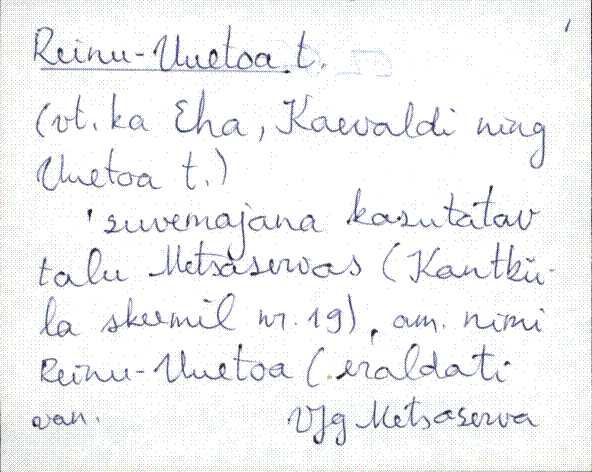 Reinu-Uuetoa t.
(vt. ka Eha, Kaevaldi ning
Uuetoa t.)
'suvemajana kasutatav
talu Metsaservas (Kantkü-
la skeemil nr. 19), am. nimi
Reinu-Uuetoa (eraldati
van. VJg Metsaserva